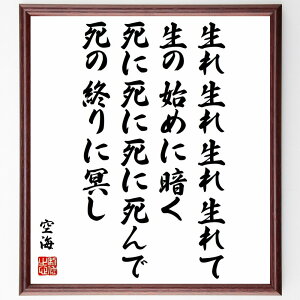 生れ生れ生れ生れて
生の始めに暗く
死に死に死に死んで
死の終りに冥し
空海